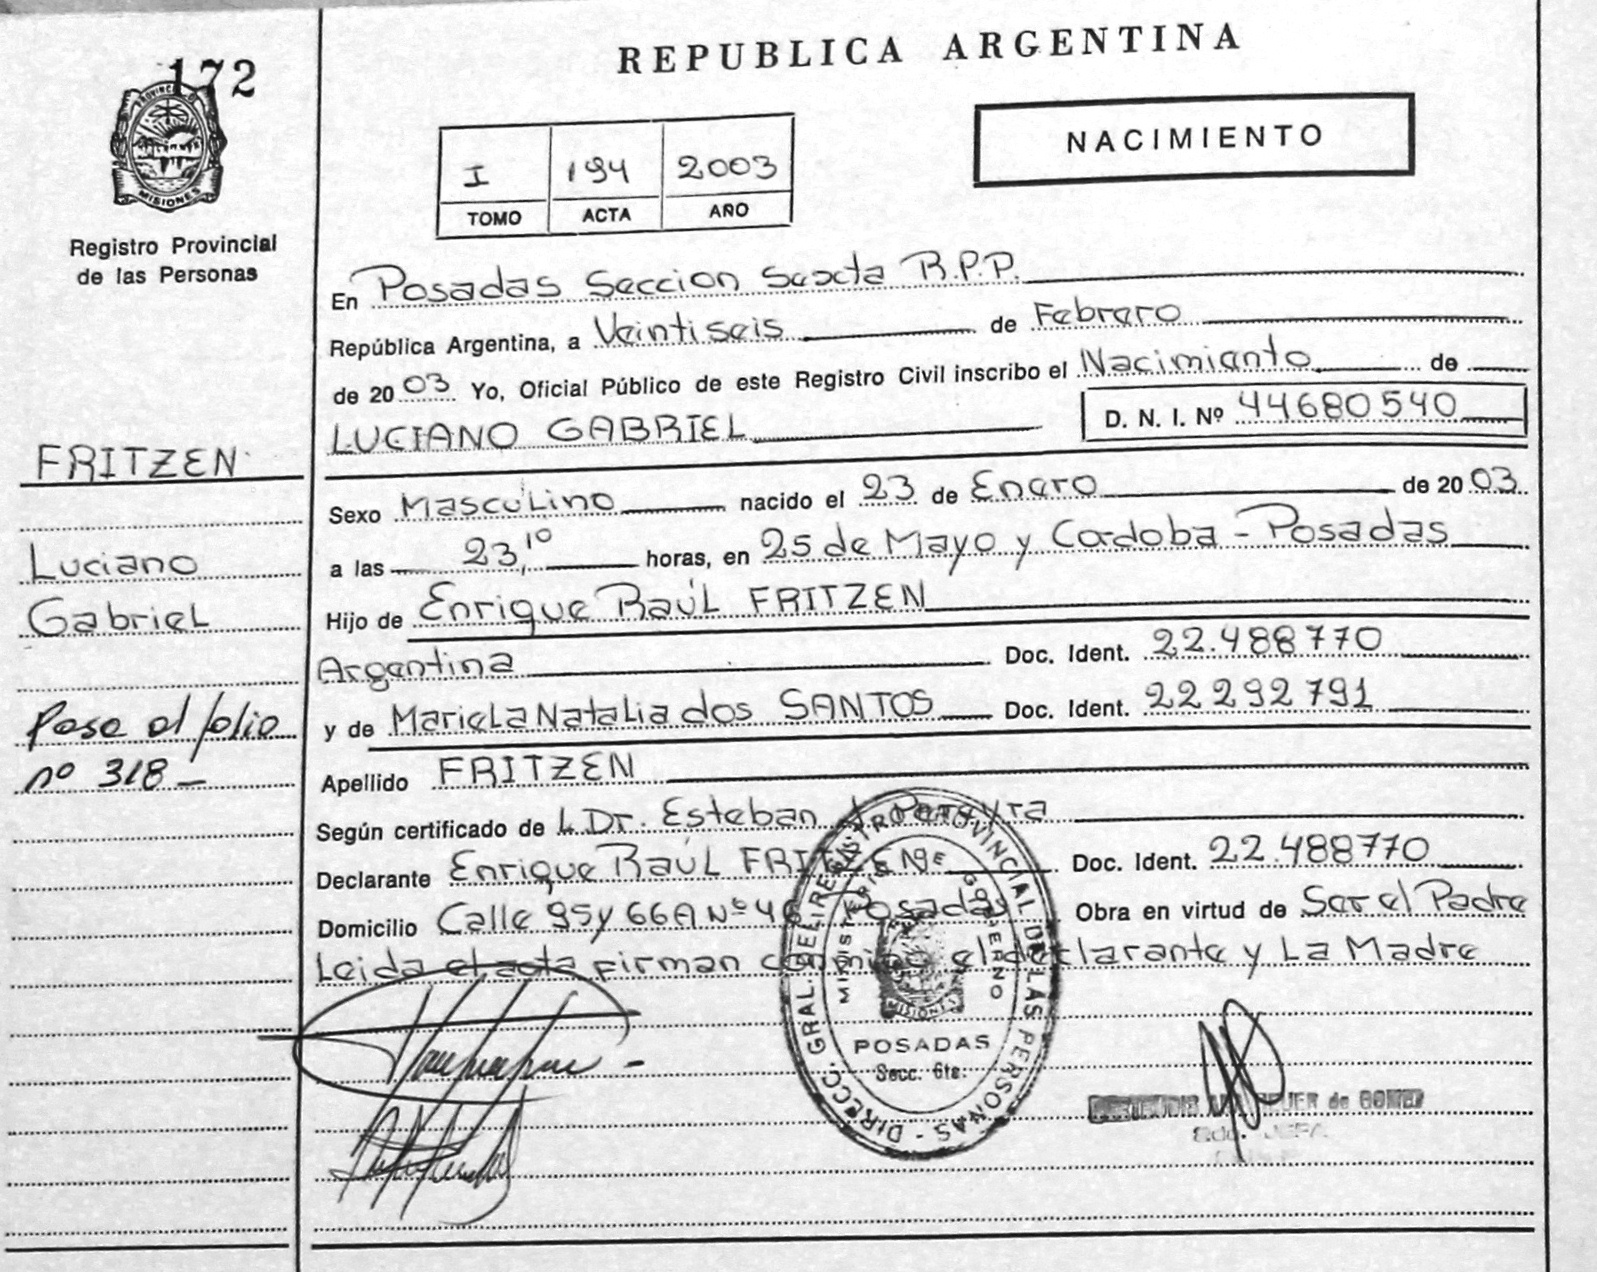 172
PROVINCIA DE
MISIONES
Registro Provincial
de las Personas
FRITZEN
Luciano
Gabriel
Pase al folio
nº 318 -
REPUBLICA ARGENTINA
NACIMIENTO
I 194 2003
TOMO ACTA AÑO
En Posadas Seccion Sexta R.P.P.
República Argentina, a Veintiseis de Febrero
de 2003 Yo, Oficial Público de este Registro Civil inscribo el Nacimiento de
LUCIANO GABRIEL D. N. I. Nº 44680540
Sexo Masculino nacido el 23 de Enero de 2003
a las 23,10 horas, en 25 de Mayo y Cordoba - Posadas
Hijo de Enrique Raúl FRITZEN
Argentina Doc. Ident. 22.488770
y de Mariela Natalia dos SANTOS Doc. Ident. 22292791
Apellido FRITZEN
Según certificado de L Dr. Esteban
Declarante Enrique Raúl FRITZEN Doc. Ident. 22.488770
Domicilio Calle 95 y 66A Nº 46 Posadas Obra en virtud de Ser el Padre
Leida el acta firman conmigo el declarante y La Madre
DIRECC. GRAL. DEL REGISTRO PROVINCIAL DE LAS PERSONAS -
MINISTERIO DE GOBIERNO
MISIONES
POSADAS
Secc. 6ta.
de GOMEZ
JEFA